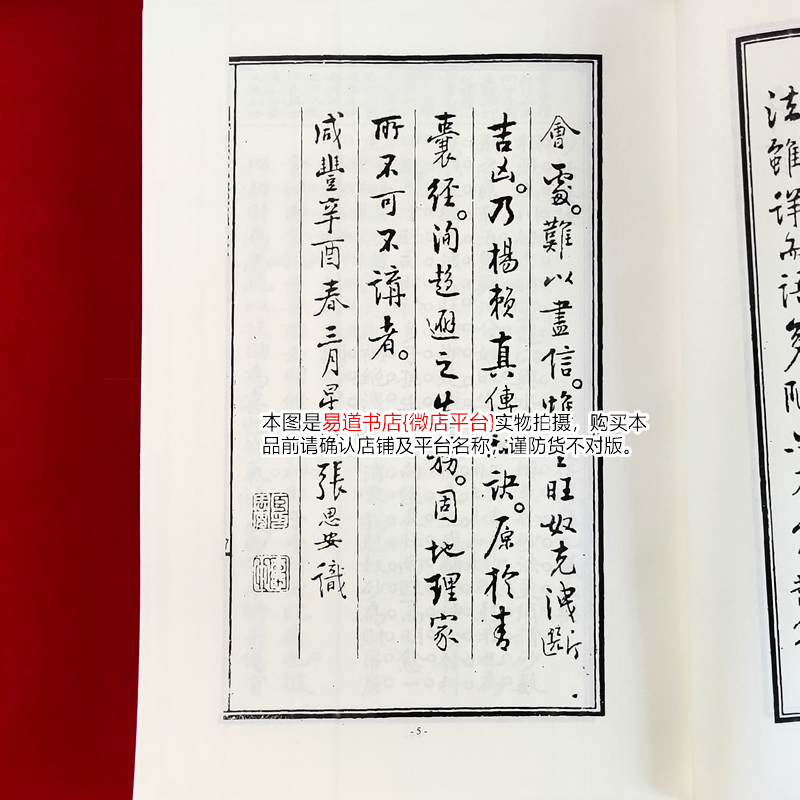 法雖詳而語多
會處。難以盡信。惟旺奴克洩斷
吉凶。乃楊賴真傳訣。原於青
囊經。洵趨避之務。固地理家
所不可不講者。
咸豐辛酉春三月星張思安識
本图是易道书店{微店平台}实物拍摄，购买本
品前请确认店铺及平台名称，谨防货不对版。
- 5 -